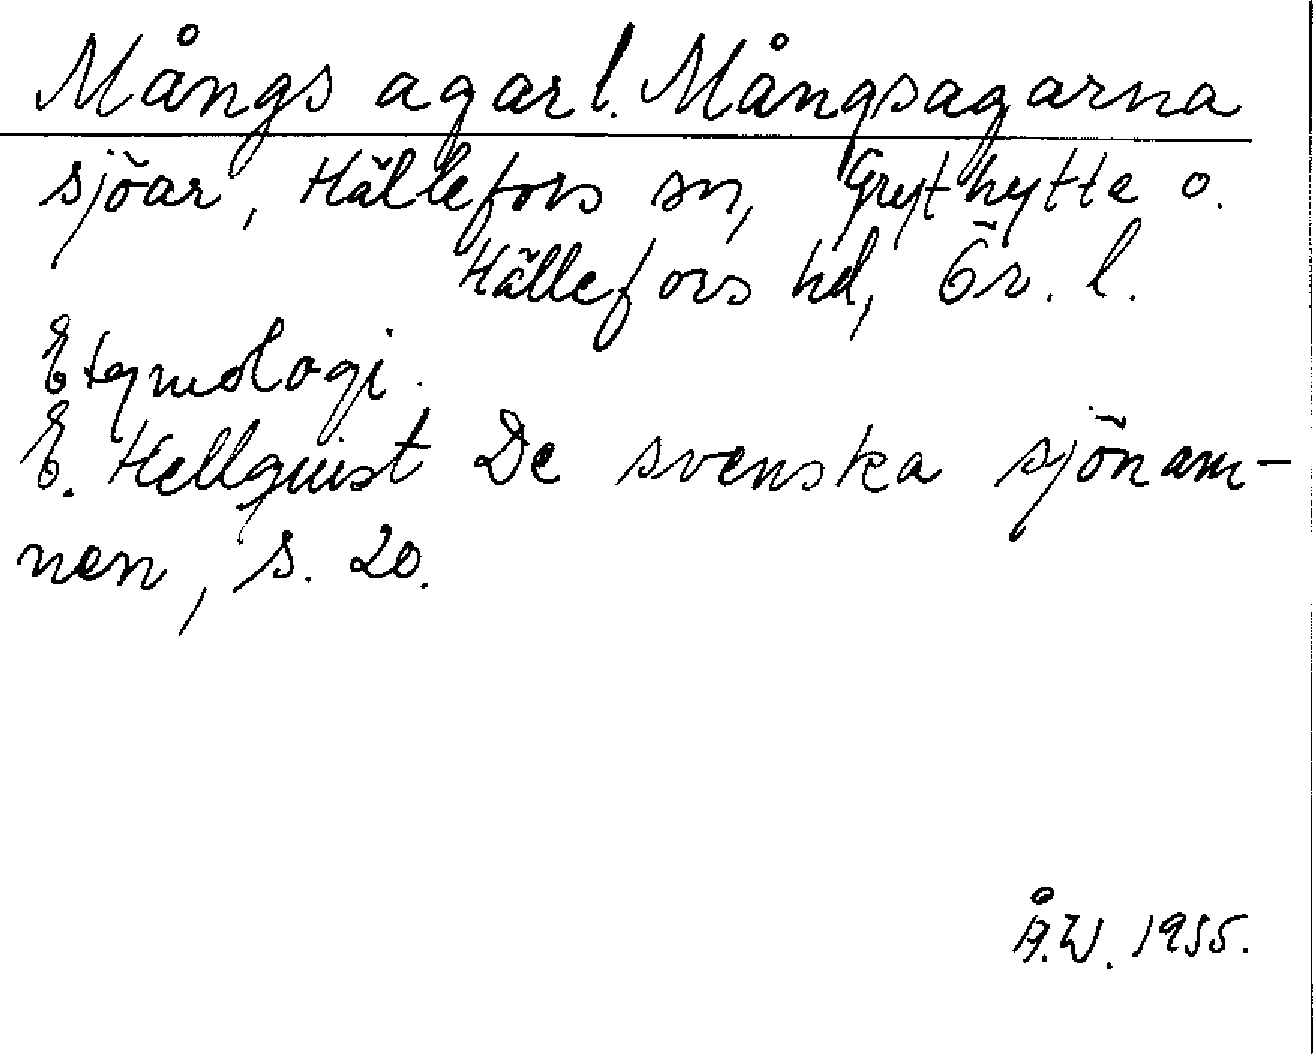 Mångs agar l. Mångsagarna
sjöar, Hällefors sn, Grythytte o.
Hällefors hd, Ör. l.
Etymologi.
E. Hellquist De svenska sjönam-
nen, s. 20.
Å.W. 1955.